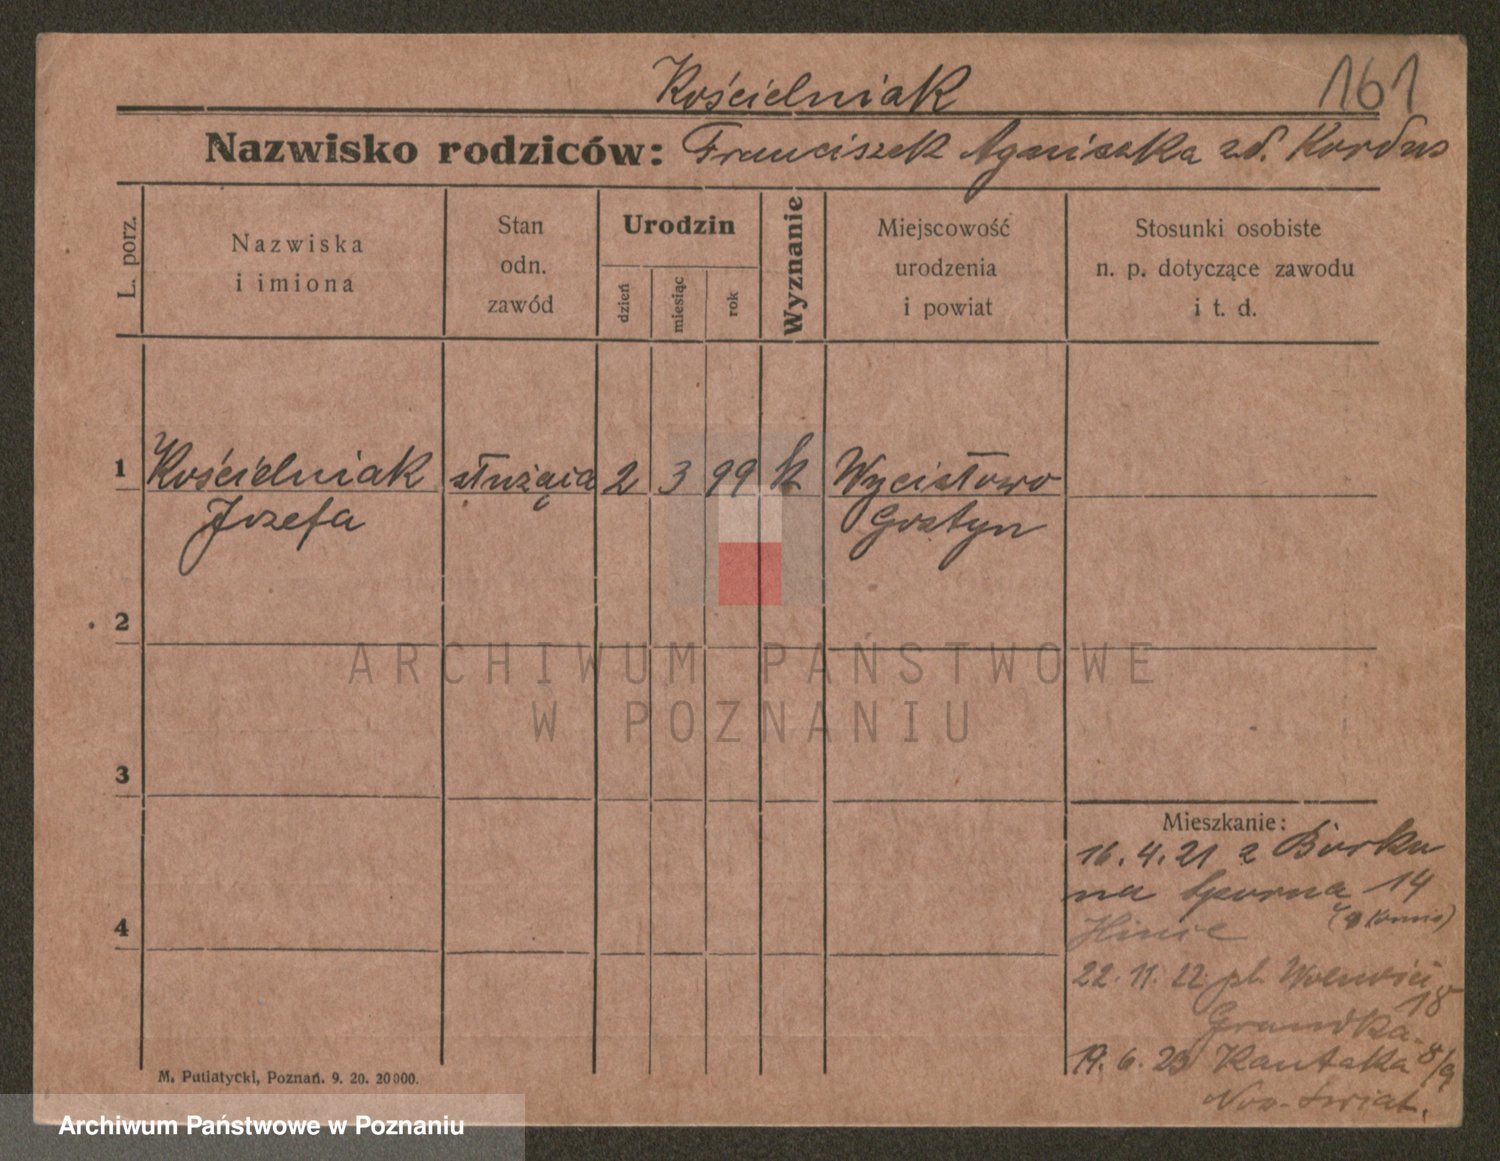 Kościelniak
161
Nazwisko rodziców: Franciszek Agnieszka zd. Kordus
L. porz.
Nazwiska
i imiona
Stan
odn.
zawód
Urodzin
dzień
miesiąc
rok
Wyznanie
Miejscowość
urodzenia
i powiat
Stosunki osobiste
n. p. dotyczące zawodu
i t. d.
1 Kościelniak służąca 2 3 99 k Wycisłowo
Józefa Gostyn
2
3
4
Mieszkanie:
16. 4. 21 z Borku
na Sporna 14
22. 11. 22 pl. Wolności
18
19. 6. 23 Kantaka 8/9
M. Putiatycki, Poznań. 9. 20. 20000.
ARCHIWUM PAŃSTWOWE
W POZNANIU
Archiwum Państwowe w Poznaniu